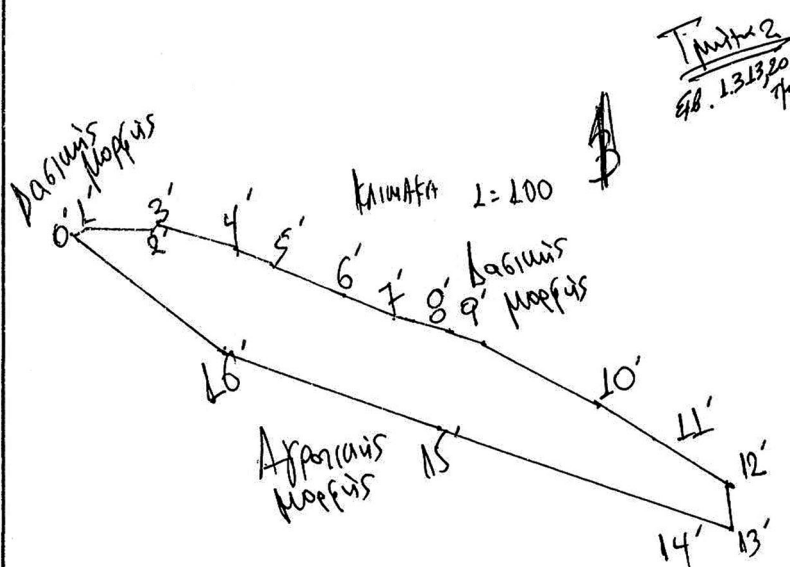 Τμήμα 2
Εμβ. 1.313,20
Δασικής
μορφής
Κλίμακα 1:100
Β
0'
1'
3'
2'
4'
5'
6'
7'
8'
9'
Δασικής
μορφής
10'
11'
12'
16'
Αγροτικής
μορφής
15'
14'
13'